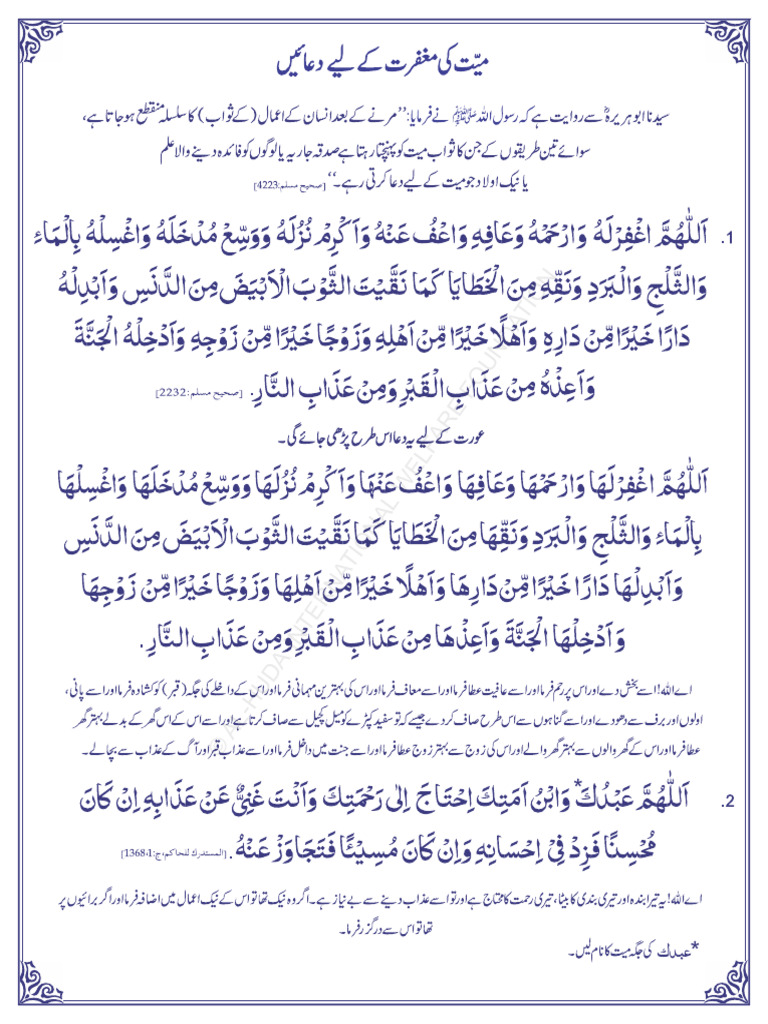 میّت کی مغفرت کے لیے دعائیں
سیدنا ابوہریرہؓ سے روایت ہے کہ رسول اللہ ﷺ نے فرمایا: ’’مرنے کے بعد انسان کے اعمال (کے ثواب) کا سلسلہ منقطع ہو جاتا ہے،
سوائے تین طریقوں کے جن کا ثواب میت کو پہنچتا رہتا ہے صدقہ جاریہ یا لوگوں کو فائدہ دینے والا علم
یا نیک اولاد جو میت کے لیے دعا کرتی رہے۔‘‘ [صحیح مسلم:4223]
1. اَللّٰهُمَّ اغْفِرْلَهُ وَارْحَمْهُ وَعَافِهِ وَاعْفُ عَنْهُ وَاَكْرِمْ نُزُلَهُ وَوَسِّعْ مُدْخَلَهُ وَاغْسِلْهُ بِالْمَاءِ
وَالثَّلْجِ وَالْبَرَدِ وَنَقِّهِ مِنَ الْخَطَايَا كَمَا نَقَّيْتَ الثَّوْبَ الْاَبْيَضَ مِنَ الدَّنَسِ وَاَبْدِلْهُ
دَارًا خَيْرًا مِّنْ دَارِهِ وَاَهْلًا خَيْرًا مِّنْ اَهْلِهِ وَزَوْجًا خَيْرًا مِّنْ زَوْجِهِ وَاَدْخِلْهُ الْجَنَّةَ
وَاَعِذْهُ مِنْ عَذَابِ الْقَبْرِ وَمِنْ عَذَابِ النَّارِ. [صحیح مسلم:2232]
عورت کے لیے یہ دعا اس طرح پڑھی جائے گی۔
اَللّٰهُمَّ اغْفِرْلَهَا وَارْحَمْهَا وَعَافِهَا وَاعْفُ عَنْهَا وَاَكْرِمْ نُزُلَهَا وَوَسِّعْ مُدْخَلَهَا وَاغْسِلْهَا
بِالْمَاءِ وَالثَّلْجِ وَالْبَرَدِ وَنَقِّهَا مِنَ الْخَطَايَا كَمَا نَقَّيْتَ الثَّوْبَ الْاَبْيَضَ مِنَ الدَّنَسِ
وَاَبْدِلْهَا دَارًا خَيْرًا مِّنْ دَارِهَا وَاَهْلًا خَيْرًا مِّنْ اَهْلِهَا وَزَوْجًا خَيْرًا مِّنْ زَوْجِهَا
وَاَدْخِلْهَا الْجَنَّةَ وَاَعِذْهَا مِنْ عَذَابِ الْقَبْرِ وَمِنْ عَذَابِ النَّارِ.
اے اللہ! اسے بخش دے اور اس پر رحم فرما اور اسے عافیت عطا فرما اور اسے معاف فرما اور اس کی بہترین مہمانی فرما اور اس کے داخلے کی جگہ (قبر) کو کشادہ فرما اور اسے پانی،
اولوں اور برف سے دھو دے اور اسے گناہوں سے اس طرح صاف کر دے جیسے کہ تو سفید کپڑے کو میل کچیل سے صاف کرتا ہے اور اسے اس کے اس گھر کے بدلے بہتر گھر
عطا فرما اور اس کے گھر والوں سے بہتر گھر والے اور اس کی زوج سے بہتر زوج عطا فرما اور اسے جنت میں داخل فرما اور اسے عذاب قبر اور آگ کے عذاب سے بچا لے۔
2. اَللّٰهُمَّ عَبْدُكَ* وَابْنُ اَمَتِكَ اِحْتَاجَ اِلٰى رَحْمَتِكَ وَاَنْتَ غَنِيٌّ عَنْ عَذَابِهِ اِنْ كَانَ
مُحْسِنًا فَزِدْ فِيْ اِحْسَانِهِ وَاِنْ كَانَ مُسِيْئًا فَتَجَاوَزْ عَنْهُ. [المستدرک للحاکم،ج:1،1368]
اے اللہ! یہ تیرا بندہ اور تیری بندی کا بیٹا، تیری رحمت کا محتاج ہے اور تو اسے عذاب دینے سے بے نیاز ہے۔ اگر وہ نیک تھا تو اس کے نیک اعمال میں اضافہ فرما اور اگر برائیوں پر
تھا تو اس سے درگزر فرما۔
*عبدك کی جگہ میت کا نام لیں۔
AL-HUDA INTERNATIONAL WELFARE FOUNDATION